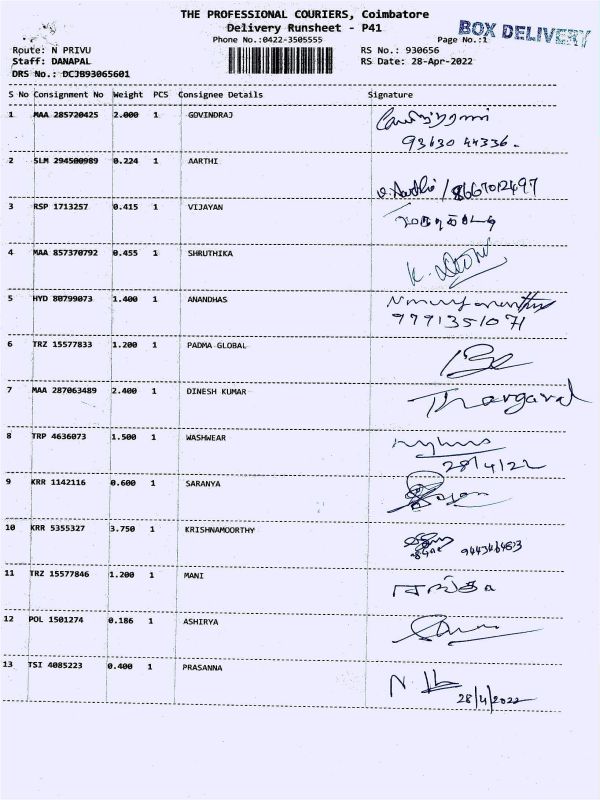 THE PROFESSIONAL COURIERS, Coimbatore
Delivery Runsheet - P41
BOX DELIVERY
Phone No.:0422-3505555
Page No.:1
Route: N PRIVU
RS No.: 930656
Staff: DANAPAL
RS Date: 28-Apr-2022
DRS No.: DCJB93065601
S No Consignment No Weight PCS Consignee Details Signature
1 MAA 285720425 2.000 1 GOVINDRAJ
93630 44336.
2 SLM 294500989 0.224 1 AARTHI
8667012497
3 RSP 1713257 0.415 1 VIJAYAN
4 MAA 857370792 0.455 1 SHRUTHIKA
5 HYD 80799073 1.400 1 ANANDHAS
9791351071
6 TRZ 15577833 1.200 1 PADMA GLOBAL
7 MAA 287063489 2.400 1 DINESH KUMAR
8 TRP 4636073 1.500 1 WASHWEAR
28/4/22
9 KRR 1142116 0.600 1 SARANYA
10 KRR 5355327 3.750 1 KRISHNAMOORTHY
11 TRZ 15577846 1.200 1 MANI
12 POL 1501274 0.186 1 ASHIRYA
13 TSI 4085223 0.400 1 PRASANNA
28/4/2022